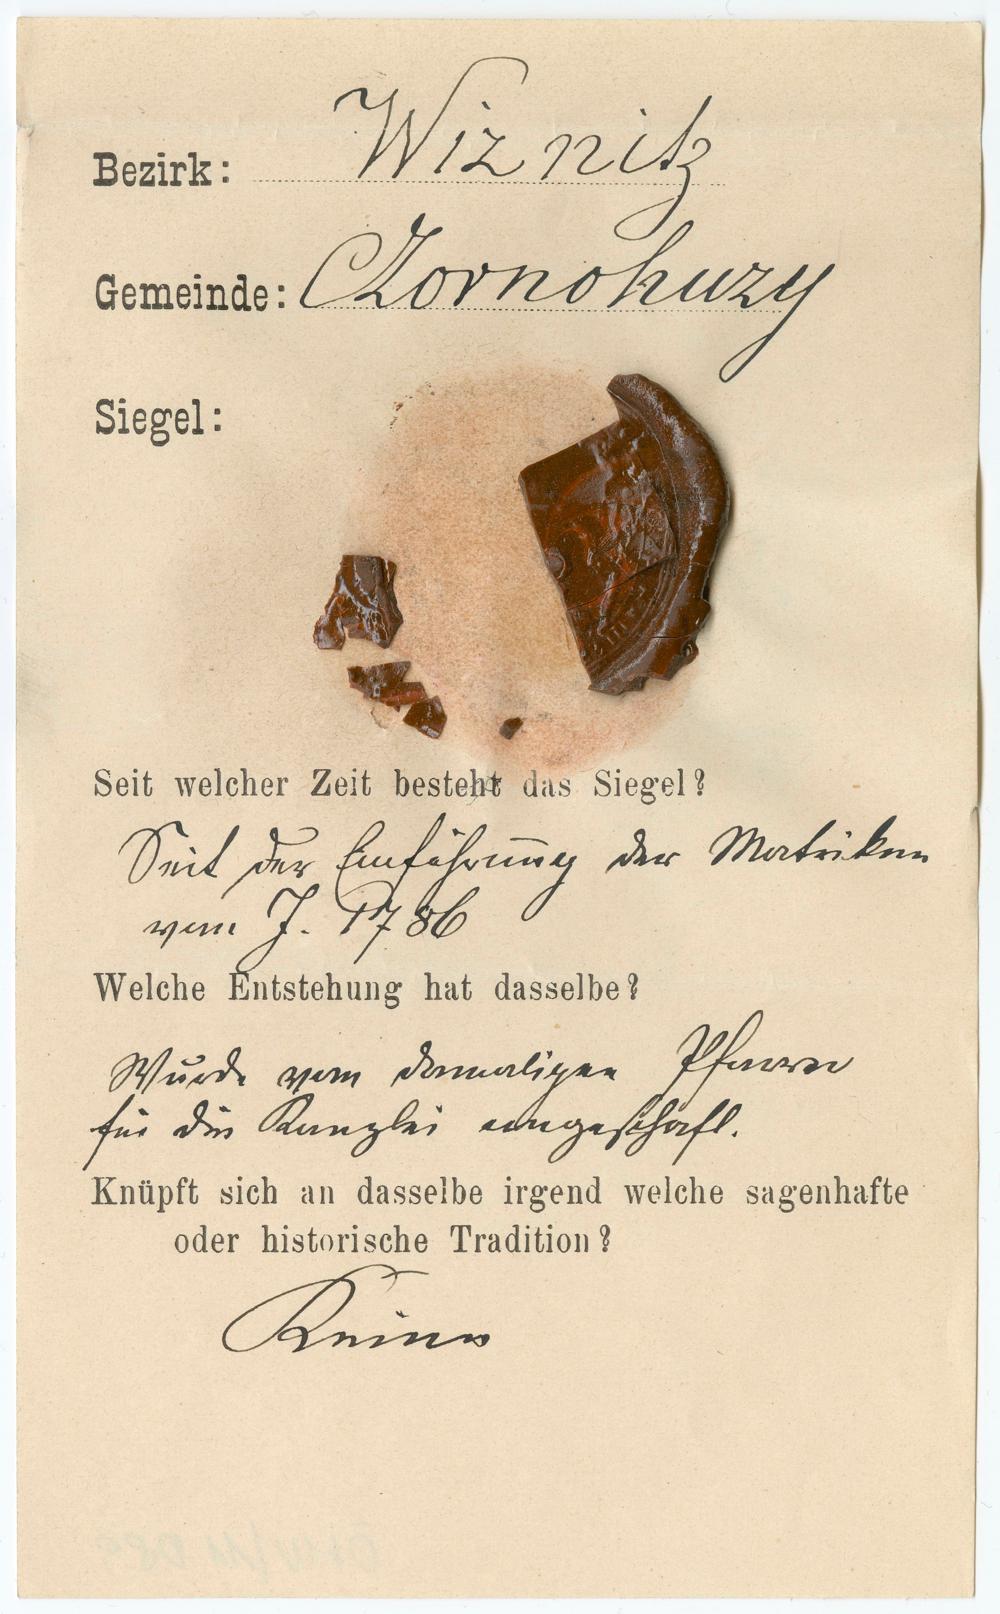 Bezirk: Wiznitz
Gemeinde: Czornohuzy
Siegel:
Seit welcher Zeit besteht das Siegel?
Seit der Einführung der Matriken
vom J. 1786
Welche Entstehung hat dasselbe?
Wurde vom damaligen Pfarrer
für die Kanzlei angeschafft.
Knüpft sich an dasselbe irgend welche sagenhafte
oder historische Tradition?
Keine